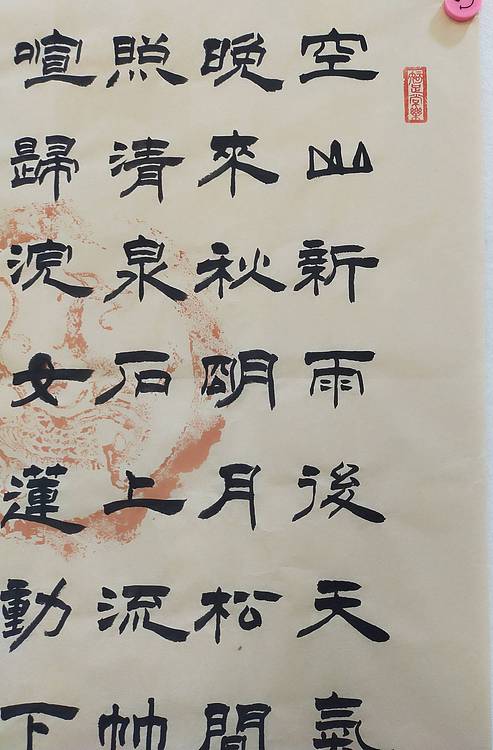 知足常樂
空山新雨後天氣
晚來秋明月松間
照清泉石上流竹
喧歸浣女蓮動下